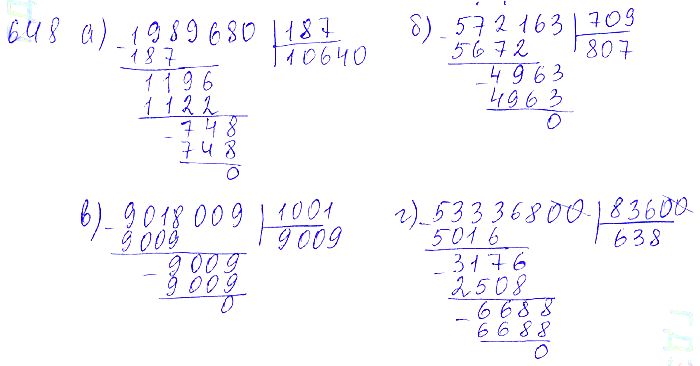 648 а) - 1989680 | 187
187 | 10640
1196
1122
- 748
748
0
б) - 572163 | 709
5672 | 807
- 4963
4963
0
в) - 9018009 | 1001
9009 | 9009
- 9009
9009
0
г) - 53336800 | 83600
5016 | 638
- 3176
2508
- 6688
6688
0